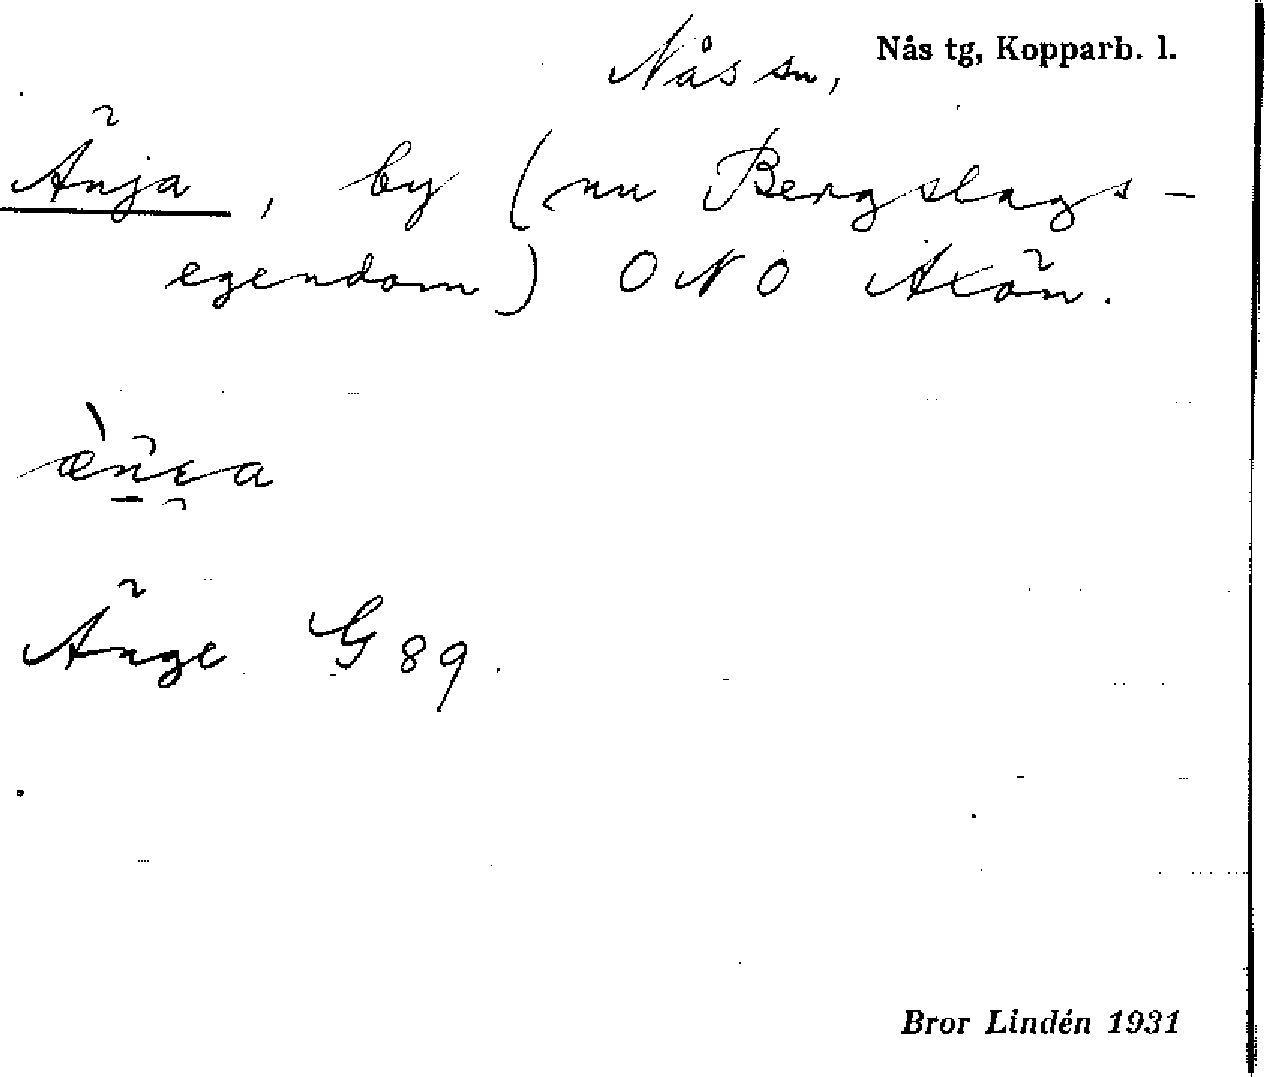 Nås sn, Nås tg, Kopparb. l.
Änja, by (nu Bergslags-
egendom) ONO Axön.
Änge G 89.
Bror Lindén 1931